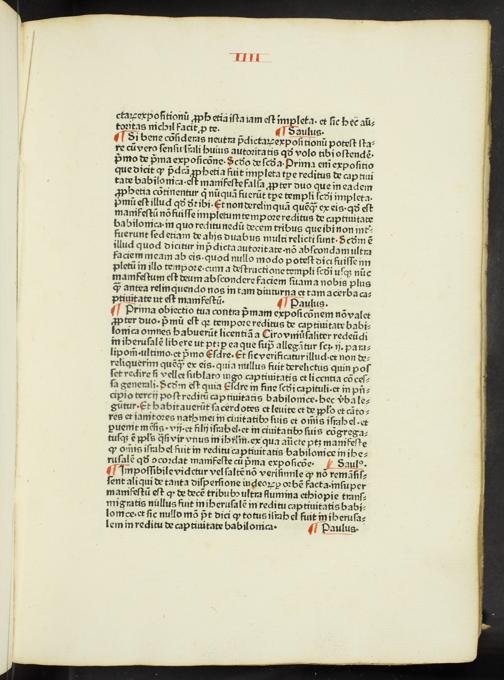 IIII
ctaꝝ expositionū ꝓphetia ista iam est impleta· et sic hec au-
toritas nichil facit ꝓ te· ¶ Saulus·
¶ Si bene cōsideras neutra p̄dictaꝝ expositionū potest sta-
re cū vero sensu lr̄ali huius autoritatis qd̄ volo tibi ostendē·
p̄mo de p̄ma exposicōne· Scd̄o de scd̄a· Prima eni expositio
que dicit ꝙ p̄dcā ꝓphetia fuit impleta tꝑe reditus de captiui
tate babilonica· est manifeste falsa ꝓpter duo que in eadem
ꝓphetia cōtinentur q̄ nūquā fuerūt tꝑe templi scd̄i impleta·
p̄mū est illud qd̄ dr̄ ibi· Et non derelinquā quēqꝫ ex eis· qd̄ est
manifestū nō fuisse impletum tempore reditus de captiuitate
babilonica· in quo reditu nedū decem tribus que ibi non int̄-
fuerunt sed etiam de alijs duabus multi relicti sunt· Scd̄m ē
illud quod dicitur in p̄dicta autoritate· nō abscondam ultra
faciem meam ab eis· quod nullo modo potest dici fuisse im
pletū in illo tempore· cum a destructione templi scd̄i usqꝫ nūc
manifestum est deum abscondere faciem suam a nobis plus
ꝙ̄ antea relinquendo nos in tam diuturna et tam acerba ca-
ptiuitate ut est manifestū· ¶ Paulus·
¶ Prima obiectio tua contra p̄mam exposicōnem nō valet
ꝓpter duo· p̄mū est ꝙ tempore reditus de captiuitate babi-
lonica omnes habuerūt licentiā a Ciro vniūsaliter redeūdi
in iherusalē libere ut pꝫ· ꝑ ea que sup̄ allegātur scꝫ· ij· para-
lipom̄· ultimo· et p̄mo Esdre· Et sic verificatur illud· et non de-
reliquerim quēqꝫ ex eis· quia nullus fuit derelictus quin pos
set redire si vellet sublato iugo captiuitatis et licentia cōces-
sa generali· Scd̄m est quia Esdre in fine scd̄i capituli· et in pn̄-
cipio tercij post reditū captiuitatis babilonice· hec v̄ba le-
gūtur· Et habitauerūt sacerdotes et leuite et de pplō et cāto-
res et ianitores nathinei in ciuitatibꝫ suis et om̄is israhel· et
ꝑuenit mēsis· vij· et filij israhel· et in ciuitatibꝫ suis cōgrega-
tusqꝫ ē pplūs q̄si vir vnus in ihrl̄m· ex qua aūcte ptꝫ manifeste
ꝙ om̄is israhel fuit in reditu captiuitatis babilonice in ihe-
rusalē qd̄ ꝯcordat manifeste cū p̄ma exposicōe· ¶ Saulꝰ·
¶ Impossibile videtur vel saltē nō verisimile ꝙ nō remāsis-
sent aliqui de tanta dispersione iudeoꝝ ꝑ orbē facta· insuper
manifestū est ꝙ de decē tribubꝫ ultra flumina ethiopie trans-
migratis nullus fuit in iherusalē in reditu captiuitatis babi-
lonice· et sic nullo mō pt̄ dici ꝙ totus israhel fuit in iherusa-
lem in reditu de captiuitate babilonica· ¶ Paulus·